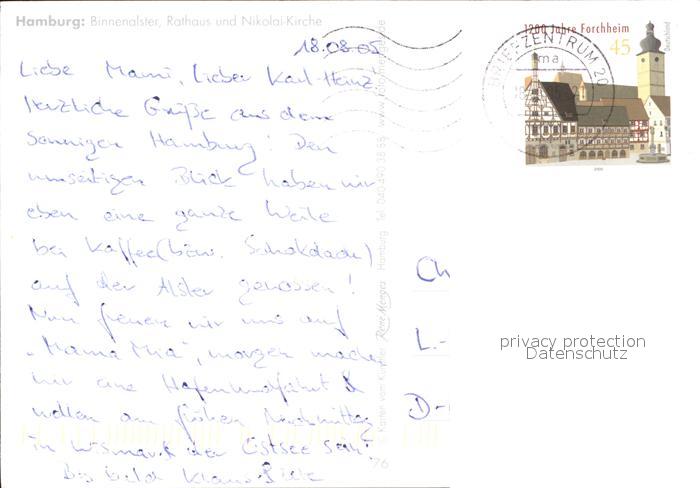 Hamburg: Binnenalster, Rathaus und Nikolai-Kirche
18.08.05
Liebe Mami, lieber Karl-Heinz
herzliche Grüße aus dem
sonnigen Hamburg! Den
umseitigen Blick haben wir
eben eine ganze Weile
bei Kaffee (bzw. Schokolade)
auf der Alster genossen!
Nun freuen wir uns auf
„Mama Mia", morgen machen
wir eine Hafenrundfahrt &
wollen am frühen Nachmittag
in Wismar & der Ostsee sein.
Bis bald Klaus
© Karten vom Künstler Hamburg Tel. 040
76
BRIEFZENTRUM 20
ma
1200 Jahre Forchheim
45
Deutschland
Ch
L.-
D-
privacy protection
Datenschutz